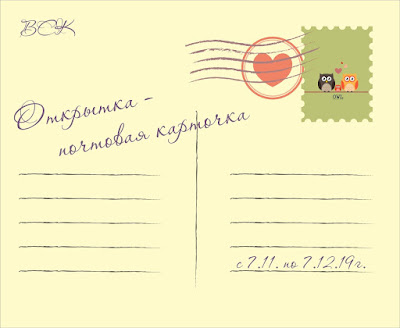 ВСК
Открытка -
почтовая карточка
с 7.11. по 7.12.19г.